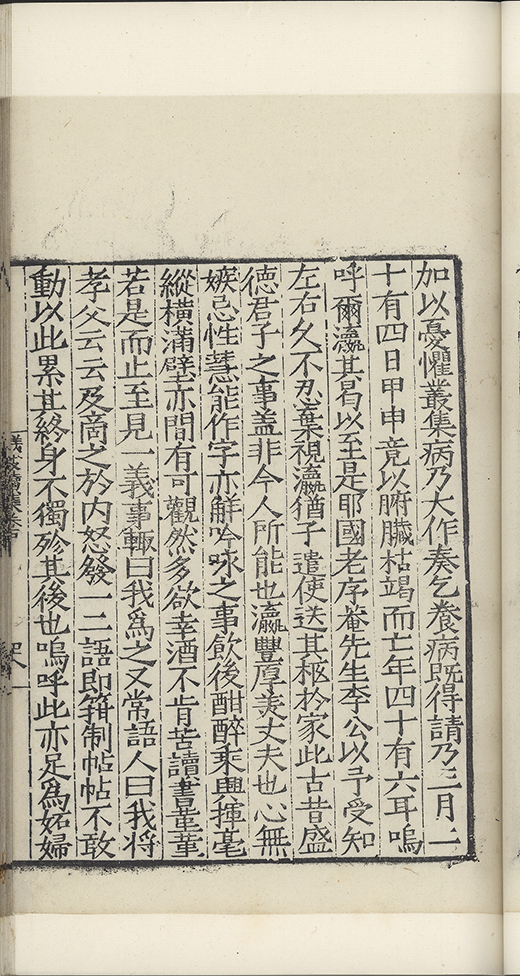 加以憂懼叢集病乃大作奏乞養病既得請乃三月二
十有四日甲申竟以腑臟枯竭而亡年四十有六耳嗚
呼爾瀛其曷以至是耶國老序菴先生李公以予受知
左右久不忍棄視瀛猶子遣使送其柩於家此古昔盛
德君子之事盖非今人所能也瀛豐厚美丈夫也心無
嫉忌性慧能作字亦解吟咏之事飲後酣醉乘興揮毫
縱橫滿壁亦間有可觀然多欲幸酒不肯苦讀書董董
若是而止至見一義事輙曰我為之又常語人曰我將
孝父云云及商之於内怒發一二語即箝制帖帖不敢
動以此累其終身不獨殄其後也嗚呼此亦足為妬婦